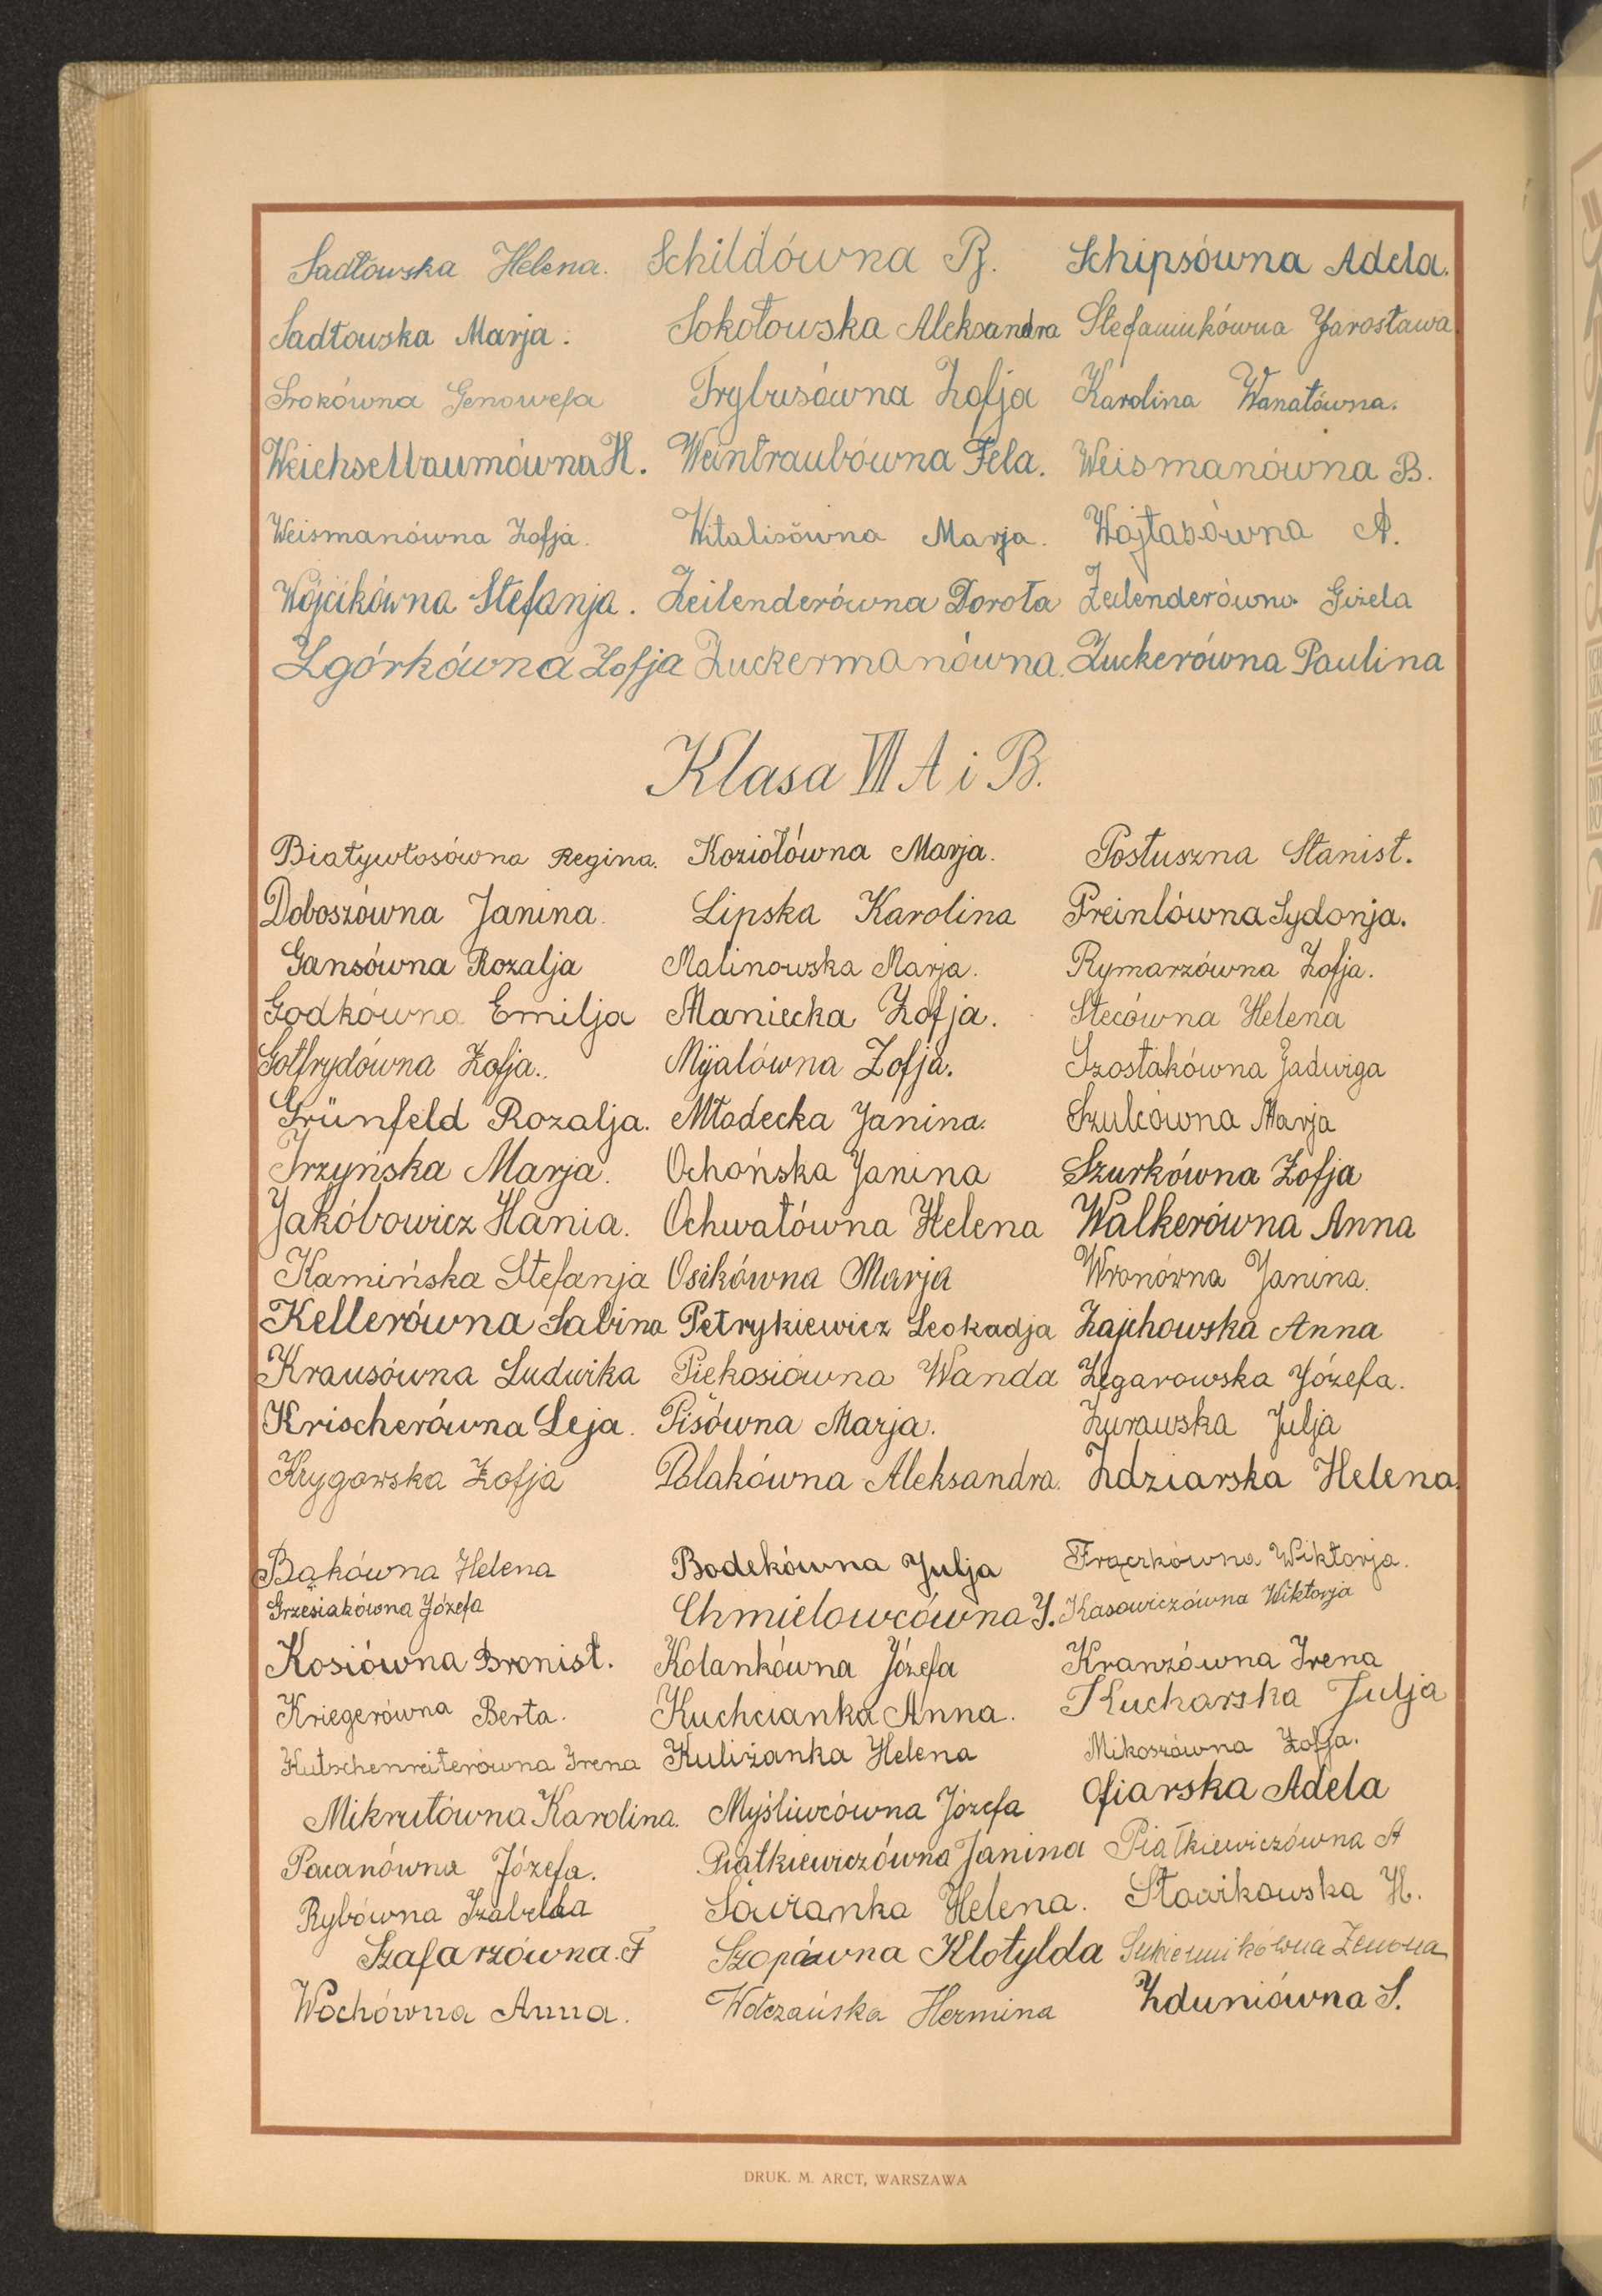 Sadłowska Helena. Schildówna B. Schipsówna Adela.
Sadłowska Marja. Sokołowska Aleksandra Stefaniukówna Jarosława.
Srokówna Genowefa Trybusówna Zofja Karolina Wanatówna.
Weichselbaumówna H. Weintraubówna Fela. Weismanówna B.
Weismanówna Zofja. Witalisówna Marja. Wojtasówna A.
Wójcikówna Stefanja. Zeilenderówna Dorota Zeilenderówna Gizela
Zgórkówna Zofja Zuckermanówna. Zuckerówna Paulina
Klasa VII A i B.
Białywłosówna Regina. Koziołówna Marja. Postuszna Stanisł.
Doboszówna Janina. Lipska Karolina Preinlówna Sydonja.
Gansówna Rozalja Malinowska Marja. Rymarzówna Zofja.
Godkówna Emilja Maniecka Zofja. Stecówna Helena
Gotfrydówna Zofja. Mijalówna Zofja. Szostakówna Jadwiga
Grünfeld Rozalja. Młodecka Janina. Szulcówna Marja
Irzyńska Marja. Ochońska Janina Szurkówna Zofja
Jakóbowicz Hania. Ochwatówna Helena Walkerówna Anna
Kamińska Stefanja Osikówna Marja Wronówna Janina.
Kellerówna Sabina Petrykiewicz Leokadja Zajchowska Anna
Krausówna Ludwika Piekosiówna Wanda Zegarowska Józefa.
Krischerówna Leja. Pisówna Marja. Żurawska Julja
Krygowska Zofja Polakówna Aleksandra. Zdziarska Helena.
Bąkówna Helena Bodekówna Julja Frączkówna Wiktorja.
Grzesiakówna Józefa Chmielowcówna J. Kasowiczówna Wiktorja
Kosiówna Bronisł. Kolankówna Józefa Kranzówna Irena
Kriegerówna Berta. Kuchcianka Anna. Kucharska Julja
Kutschenreiterówna Irena Kuliżanka Helena Mikoszówna Zofja.
Mikrutówna Karolina. Myśliwcówna Józefa Ofiarska Adela
Pacanówna Józefa. Piątkiewiczówna Janina Piątkiewiczówna A
Rybówna Izabella Sowianka Helena. Stawikowska H.
Szafarzówna. F Szopówna Klotylda Sukiennikówna Zenona
Wochówna Anna. Wołczańska Hermina Zduniówna S.
DRUK. M. ARCT, WARSZAWA